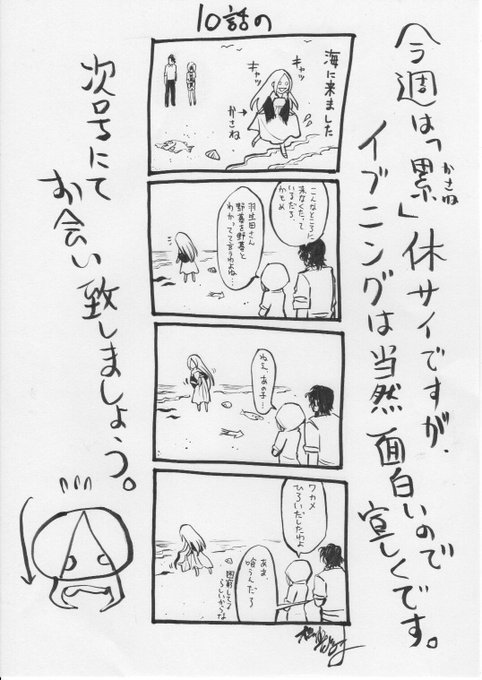 10話の
今週は「累」休サイですが、
かさね
イブニングは当然面白いので
宜しくです。
海に来ました
キャッ
キャッ
かさね
こんなところに
来なくたって
いるだろ、
かもめ
羽生田さん
野暮を野暮と
わかってて言うわよね…
ねえ、あの子…
ワカメ
ひろいだしたわよ
喰うんだろ
らしいからな
次号にて
お会い致しましょう。